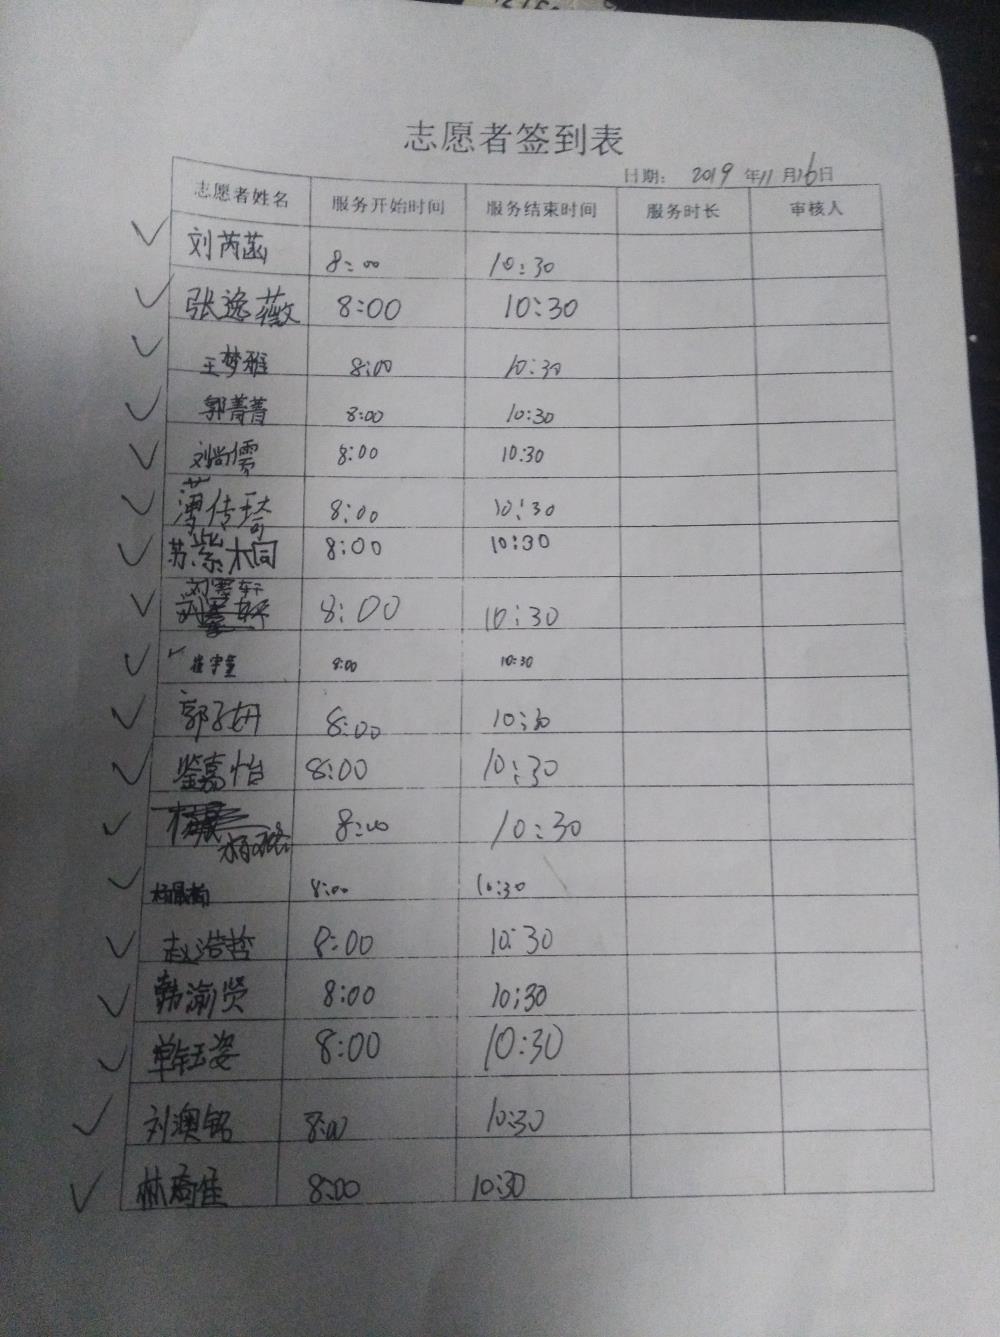 志愿者签到表
日期: 2019 年11月16日
志愿者姓名 服务开始时间 服务结束时间 服务时长 审核人
刘芮菡 8:00 10:30
张逸薇 8:00 10:30
王梦雅 8:00 10:30
郭菁菁 8:00 10:30
刘尚儒 8:00 10:30
薄传琦 8:00 10:30
苏紫桐 8:00 10:30
刘雯轩 8:00 10:30
8:00 10:30
郭子妍 8:00 10:30
嘉怡 8:00 10:30
8:00 10:30
8:00 10:30
赵浩哲 8:00 10:30
韩渝贤 8:00 10:30
单钰姿 8:00 10:30
刘澳铭 8:00 10:30
林奇佳 8:00 10:30